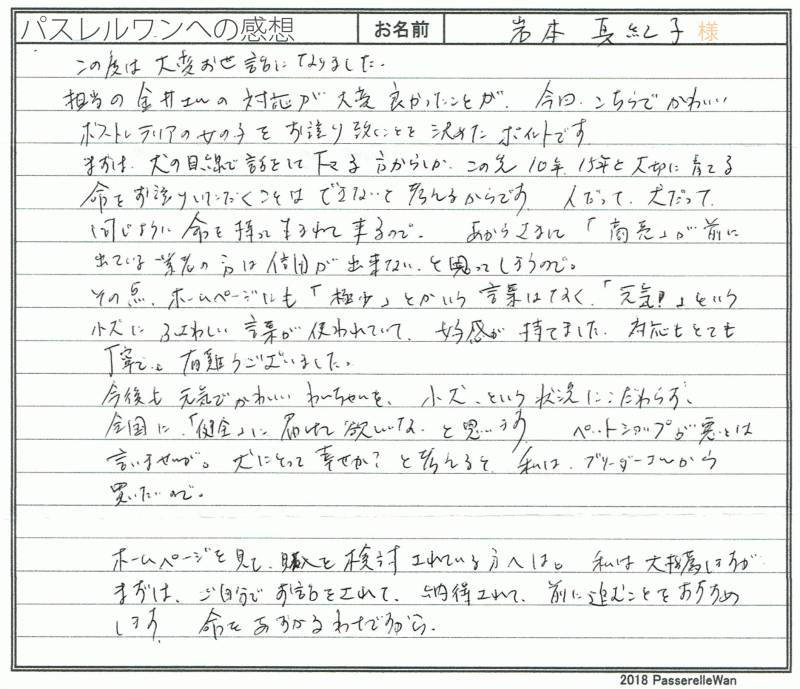 パスレルワンへの感想 お名前 岩本 真紀子 様
この度は大変お世話になりました。
担当の金井さんの対応が大変良かったことが、今回、こちらでかわいい
ボストンテリアの女の子をお譲り頂くことを決めたポイントです
まずは、犬の目線で話をして下さる方からしか、この先10年、15年と大切に育てる
命をお譲りいただくことはできないと考えるからです。人だって、犬だって、
同じように命を持って生まれて来るので。あからさまに「商売」が前に
出ている業者の方は信用が出来ない、と思ってしまうので。
その点、ホームページにも「極少」とかいう言葉はなく、「元気!」という
小犬にふさわしい言葉が使われていて、好感が持てました。対応もとても
丁寧で、有難うございました。
今後も元気でかわいいわんちゃんを、小犬、という状況にこだわらず、
全国に、「健全」に届けて欲しいな、と思います ペットショップが悪いとは
言いませんが。犬にとって幸せか?と考えると、私は、ブリーダーさんから
買いたいので。
ホームページを見て、購入を検討されている方へは。私は大推薦しますが
まずは、ご自分でお話をされて、納得されて、前に進むことをおすすめ
します。命をあずかるわけですから。
2018 PasserelleWan